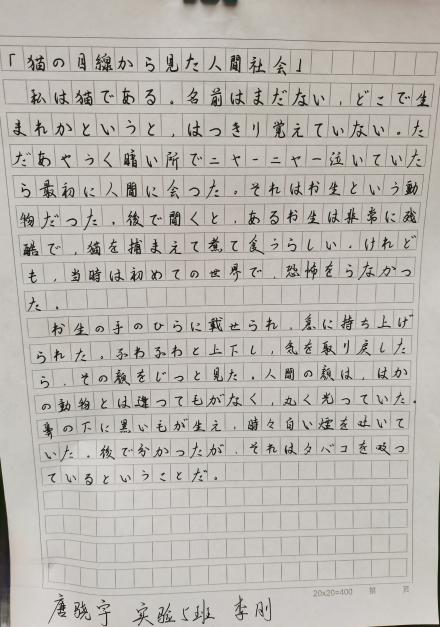 「猫の目線から見た人間社会」
私は猫である。名前はまだない、どこで生
まれかというと、はっきり覚えていない。た
だあやうく暗い所でニャーニャー泣いていた
ら最初に人間に会った。それはお生という動
物だった。後で聞くと、あるお生は非常に残
酷で、猫を捕まえて煮て食うらしい。けれど
も、当時は初めての世界で、恐怖をらなかっ
た。
お生の手のひらに載せられ、急に持ち上げ
られた。ふわふわと上下し、気を取り戻した
ら、その顔をじっと見た。人間の顔は、はか
の動物とは違つてもがなく、丸く光っていた。
鼻の下に黒いもが生え、時々白い煙を吐いて
いた。後で分かったが、それはタバコを吸っ
ているということだ。
20x20=400 第 页
唐骁宇 实验5班 李刚